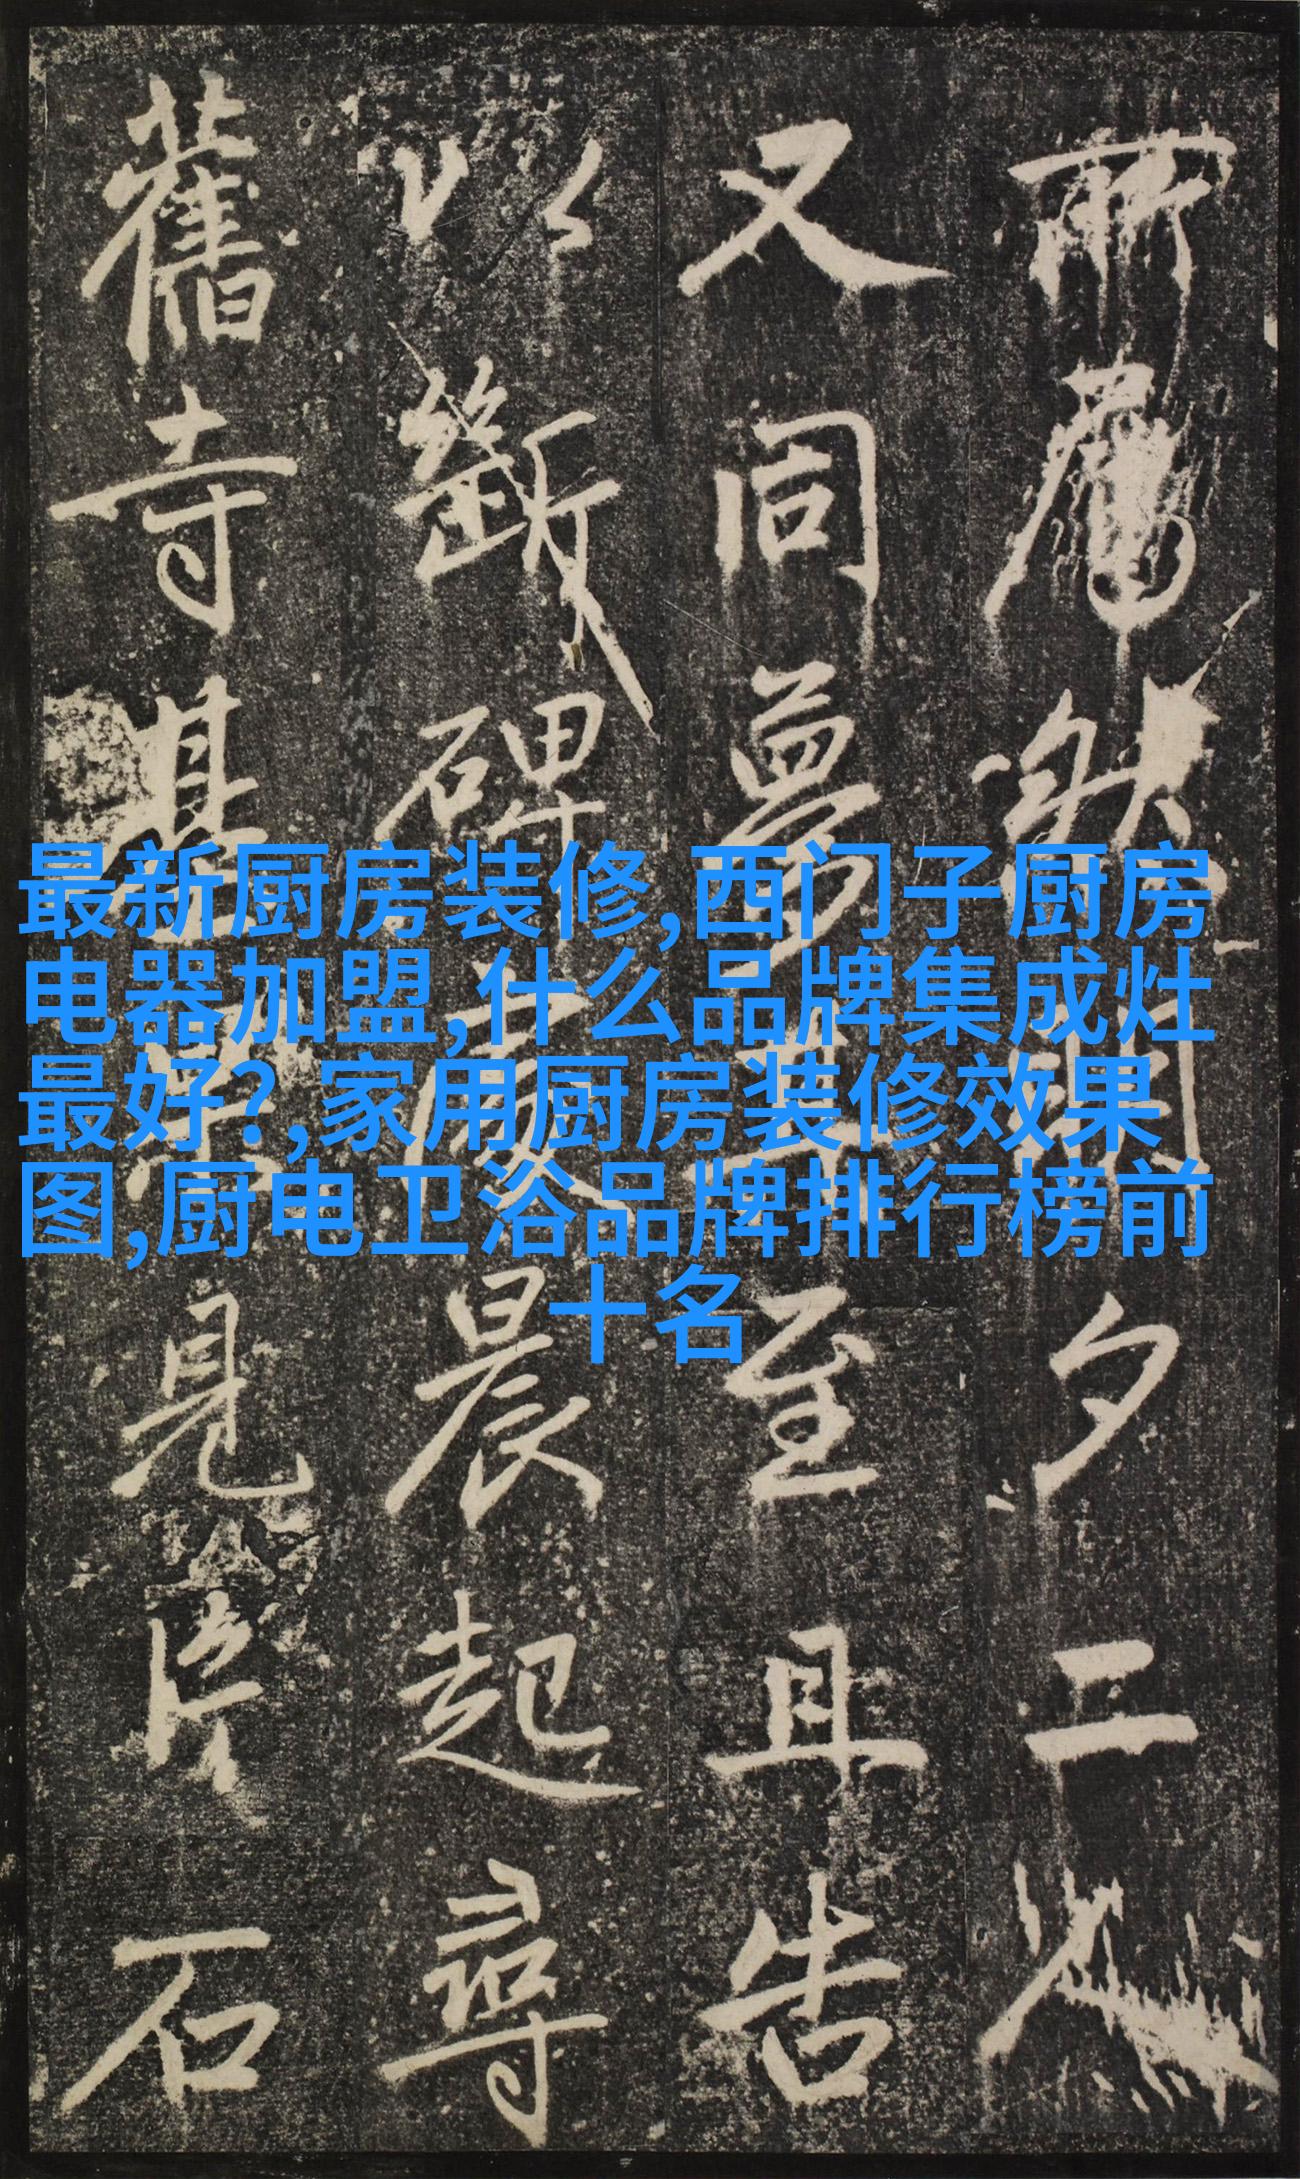 夕二
又同夢至且告
以斷碑晨起尋
舊寺基果見片石
最新厨房装修,西门子厨房
电器加盟,什么品牌集成灶
最好?,家用厨房装修效果
图,厨电卫浴品牌排行榜前
十名